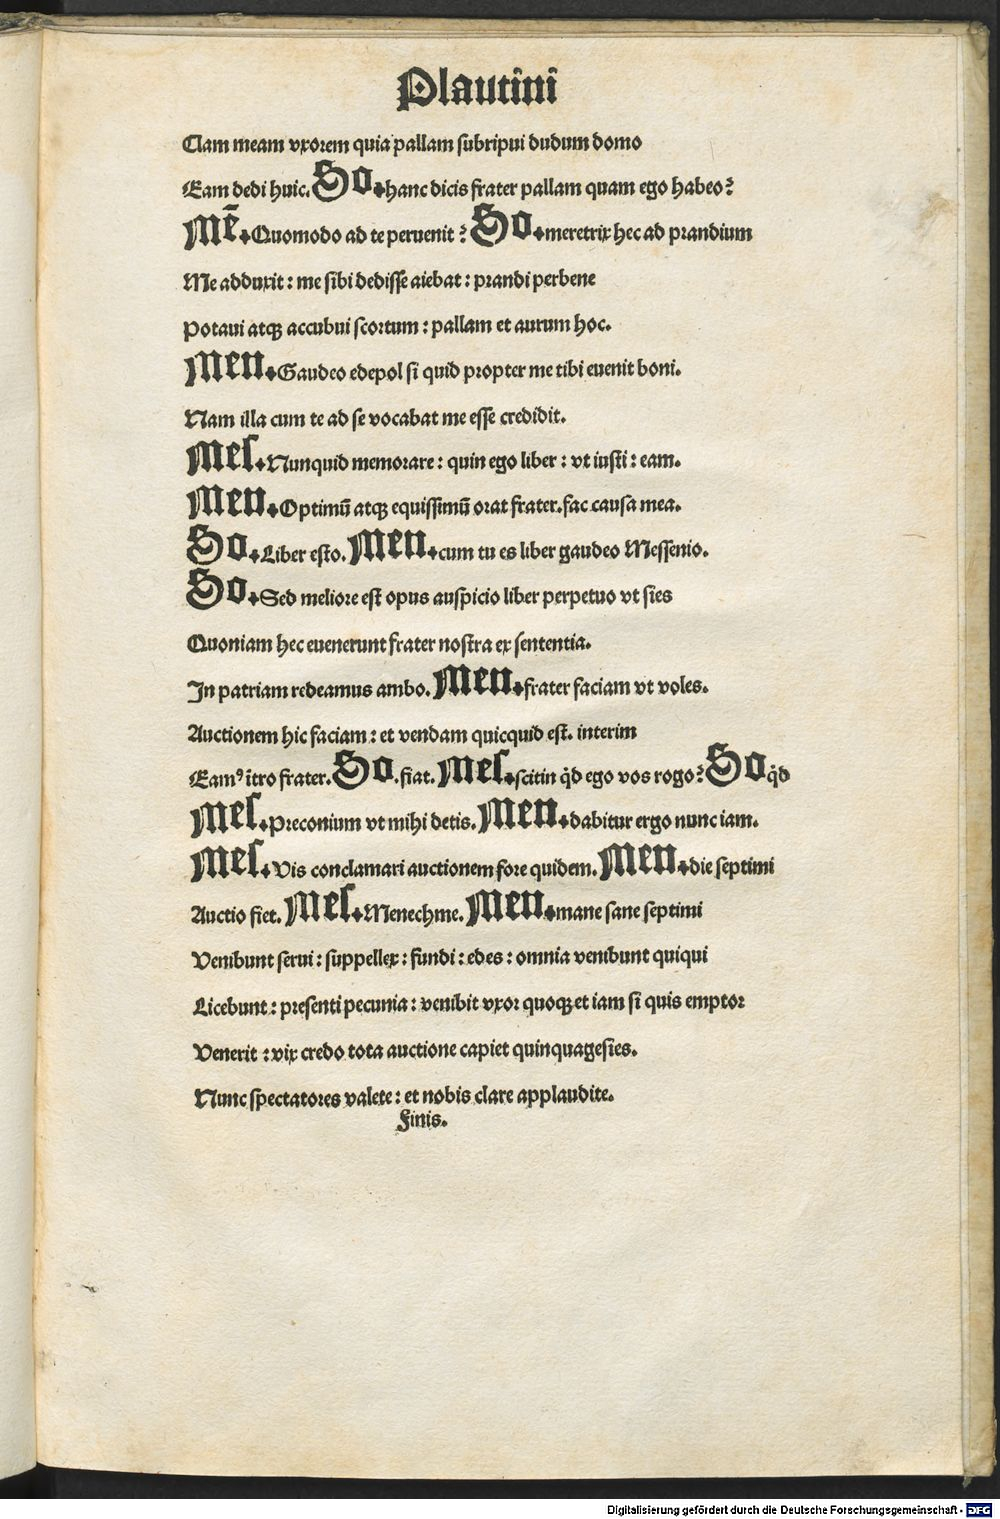 Plautini
Clam meam vxorem quia pallam subripui dudum domo
Eam dedi huic. So. hanc dicis frater pallam quam ego habeo?
Mē. Quomodo ad te peruenit? So. meretrix hec ad prandium
Me adduxit: me sibi dedisse aiebat: prandi perbene
Potaui atqȝ accubui scortum: pallam et aurum hoc.
Men. Gaudeo edepol si quid propter me tibi euenit boni.
Nam illa cum te ad se vocabat me esse credidit.
Mes. Nunquid memorare: quin ego liber: vt iusti: eam.
Men. Optimū atqȝ equissimū orat frater. fac causa mea.
So. Liber esto. Men. cum tu es liber gaudeo Messenio.
So. Sed meliore est opus auspicio liber perpetuo vt sies
Quoniam hec euenerunt frater nostra ex sententia.
In patriam redeamus ambo. Men. frater faciam vt voles.
Auctionem hic faciam: et vendam quicquid est. interim
Eamꝰ ītro frater. So. fiat. Mes. scitin q̄d ego vos rogo? So q̄d
Mes. Preconium vt mihi detis. Men. dabitur ergo nunc iam.
Mes. Vis conclamari auctionem fore quidem. Men. die septimi
Auctio fiet. Mes. Menechme. Men. mane sane septimi
Venibunt serui: suppellex: fundi: edes: omnia venibunt quiqui
Licebunt: presenti pecunia: venibit vxor quoqȝ et iam si quis emptor
Venerit: vix credo tota auctione capiet quinquagesies.
Nunc spectatores valete: et nobis clare applaudite.
Finis.
Digitalisierung gefördert durch die Deutsche Forschungsgemeinschaft - DFG